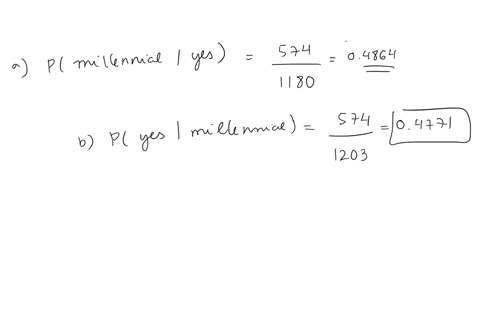 a) P( millennial / yes) = 574 / 1180 = 0.4864
b) P( yes | millennial) = 574 / 1203 = 0.4771